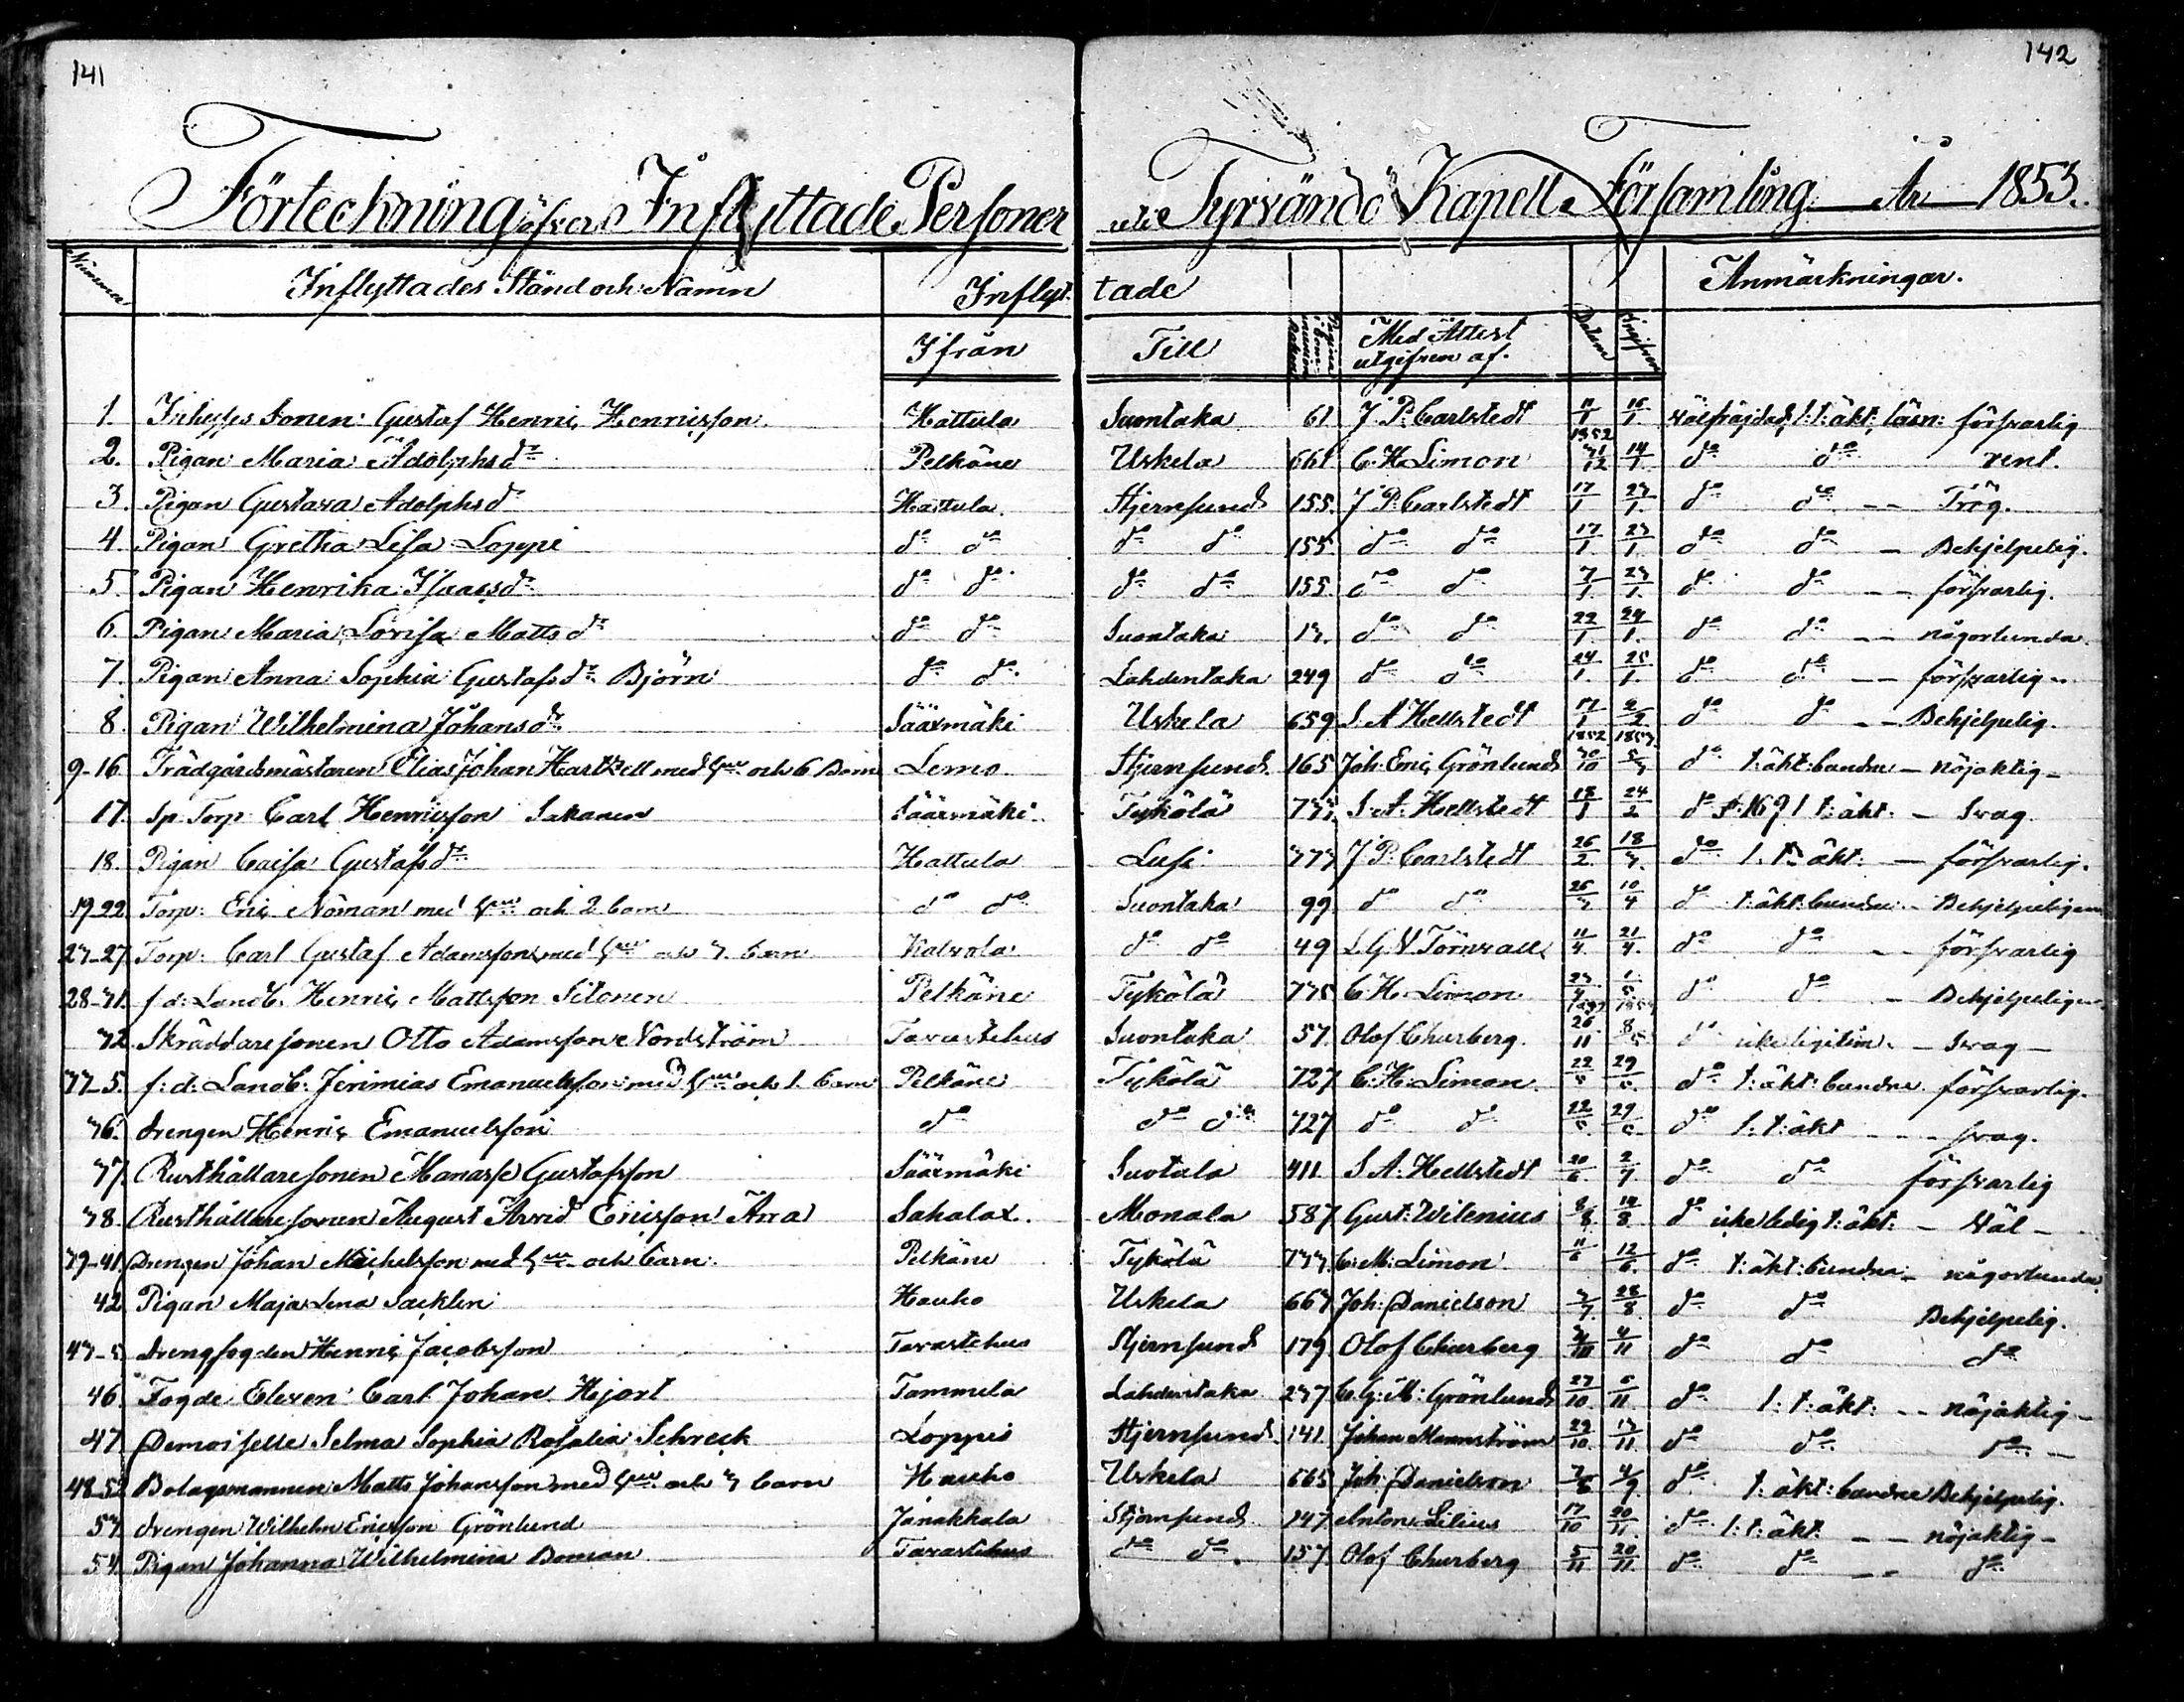 141
142
Förteckning öfver Inflyttade Personer uti Tyrvändö Kapell Församling År 1853.
Nummer Inflyttades Stånd och Namn Inflyttade Anmärkningar.
Ifrån Till Pagina i Communion Boken Med Attest utgifven af. Datum Ingifven
1. Inhyses Sonen: Gustaf Henric Henricsson. Hattula Suontaka 61 J. P. Carlstedt 11/1 16/1 välfräjdad, l: t: äkt: läsn: försvarlig
2. Pigan Maria Adolphsdr Pelkäne Uskela 661 C. H. Limon 1852 31/12 14/1 do do rent.
3. Pigan Gustava Adolphsdr Hattula Stjernsund 155. J. P. Carlstedt 17/1 23/1. do do -- Trög.
4. Pigan Gretha Lisa Loppi do do do do 155 do do 17/1. 23/1. do do - Behjelpelig.
5. Pigan Henrika Isaacsdr do do do do 155 do do 7/1. 23/1. do do -- försvarlig.
6. Pigan Maria Lovisa Mattsdr do do Suontaka 13. do do 22/1. 24/1. do do -- någorlunda.
7. Pigan Anna Sophia Gustafsdr Björn do do Lahdentaka 249 do do 24/1. 25/1. do do -- försvarlig
8. Pigan Wilhelmina Johansdr Sääxmäki Uskela 659 S. A. Hellstedt 17/1 2/2 do do -- Behjelpelig.
9-16 Trädgårdsmästaren Elias Johan Hartzell med hu och 6 Barn Lemo Stjernsund 165 Joh. Eric Grönlund 1852 30/10 1853 5/3 do t: äkt: bundne - nöjaktig -
17. Sp. Torp: Carl Henricsson Sakanen Sääxmäki Tykölä 333 S. A. Hellstedt 18/1 24/2 do f. 1691 t: äkt: - Svag
18. Pigan Caisa Gustafsdr Hattula Lusi 373 J. P. Carlstedt 26/2. 18/3. do l. t: äkt: - försvarlig.
19-22 Torp: Eric Nöman med hu och 2 barn do do Suontaka 99 do do 26/3 10/4 do t: äkt: bundne - Behjelpeligen
23-27 Torp: Carl Gustaf Adamsson med hu och 3. barn Kalvola do do 49 L. G. V. Törnvall 11/4. 21/4. do do -- försvarlig
28-31. f. d: Landb. Henric Mattsson Sitonen Pelkäne Tykölä 335 C. H. Limon do do - Behjelpeligen
32. Skräddaresonen Otto Adamsson Nordström Tavastehus Suontaka 57 Olof Churberg. 26/11 8/5 do icke legitim. - Svag -
33-5. f: d: Landb: Jerimias Emanuelsson med hu och 1. barn Pelkäne Tykölä 327 C. H. Limon 22/5 29/5. do t: äkt: bundne försvarlig.
36. drengen Henric Emanuelsson do do do 327 do do 22/5. 29/5. do l: t: äkt --- svag.
37. Rusthållaresonen Manasse Gustafsson Sääxmäki Suotala 411. S. A. Hellstedt 20/6. 2/7 do do försvarlig
38. Rusthållaresonen August Arvid Ericsson Arra Sahalax. Monala 587 Gust: Wilenius 8/8. 14/8 do icke ledig t: äkt: - Väl -
39-41 Drengen Johan Michelsson med hu och barn. Pelkäne Tykölä 333. C. H. Limon 11/6 12/6. do t: äkt: bundne - någorlunda
42 Pigan Maja Lena Sacklen Hauho Uskela 663 Joh: Danielson 3/7. 28/8. do do Behjelpelig.
43-5 drengfogden Henric Jacobsson Tavastehus Stjernsund 179 Olof Churberg 31/10 4/11 do do do
46 Fogde Eleven Carl Johan Hjort Tammela Lahdentaka 237 C. G: M: Grönlund 27/10 6/11 do l: t: äkt: -- nöjaktig -
47 Demoiselle Selma Sophia Rosalia Schreck Loppis Stjernsund 141 Johan Mannström 29/10. 13/11 do do do -
48-52 Bolagsmannen Matts Johansson med hu och 3 barn Hauho Uskela 665 Joh: Danielson 4/9 do t: äkt: bundne Behjelpelig.
53 drengen Wilhelm Ericsson Grönlund Janakkala Stjernsund 147 Anton Lilius 17/10 20/11. do l: t: äkt -- nöjaktig -
54. Pigan Johanna Wilhelmina Boman Tavastehus do do 157 Olof Churberg 5/11 20/11. do do -- do